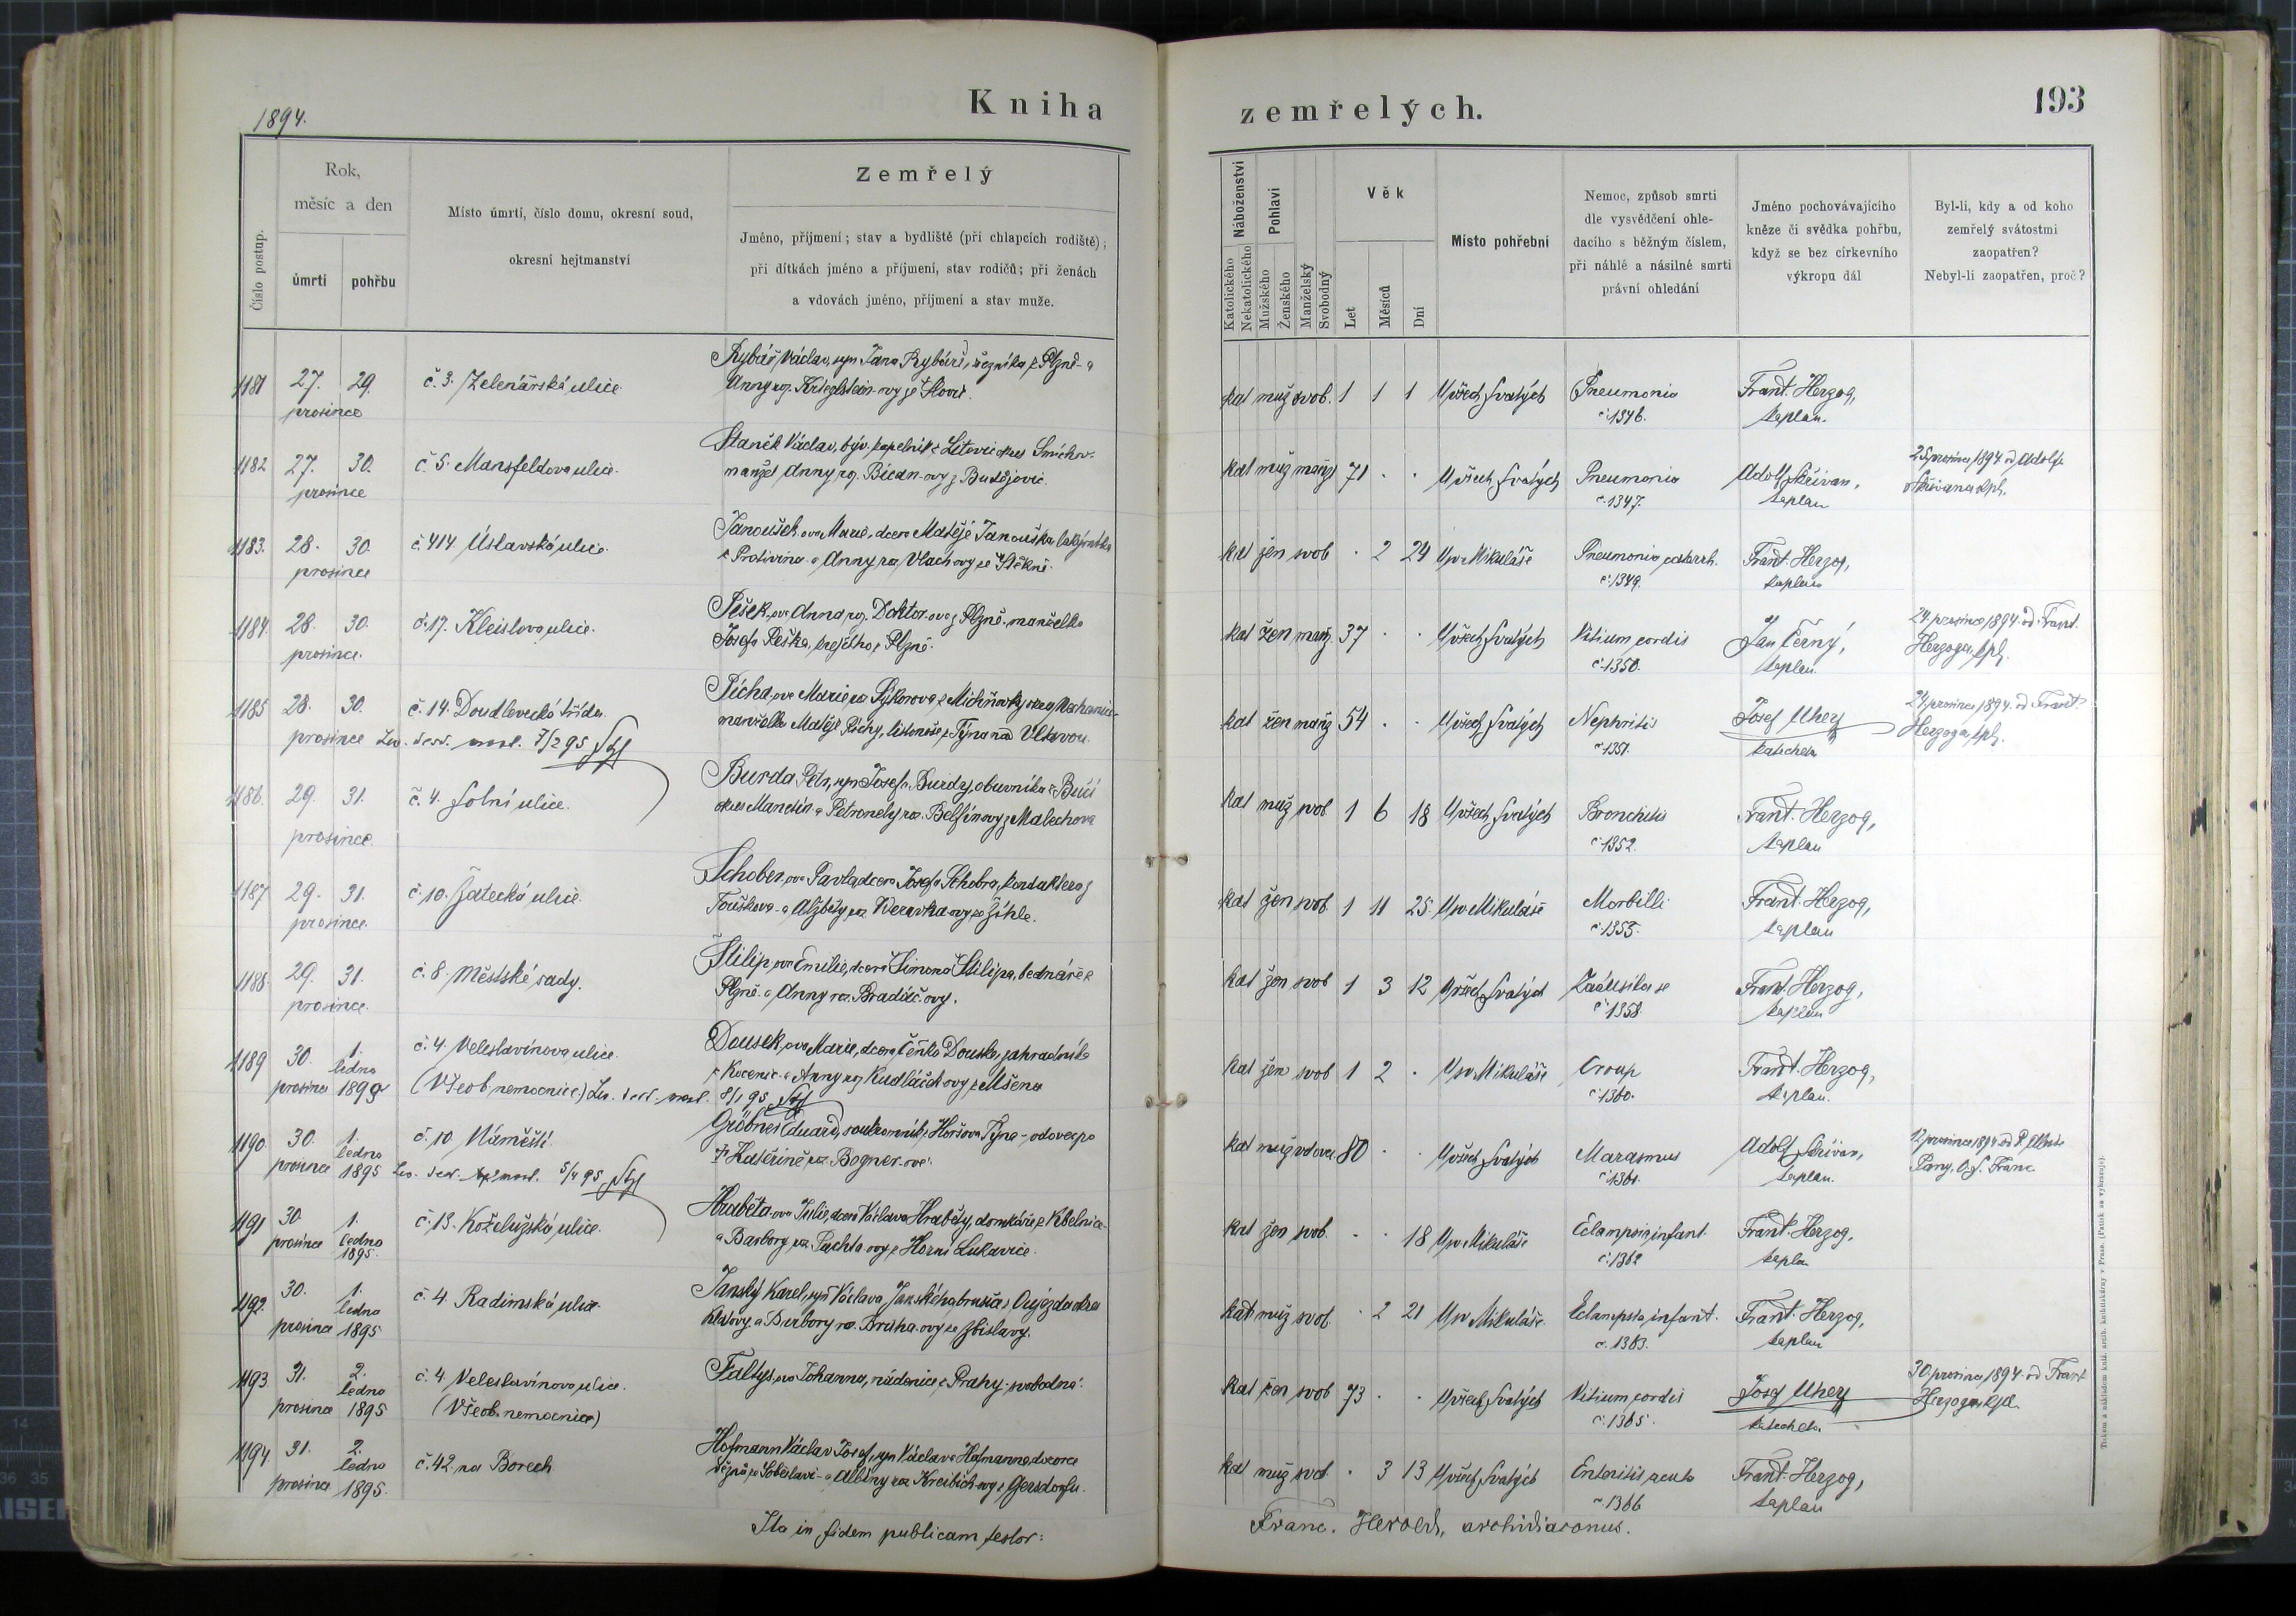 1894.
Kniha
Číslo postup.
Rok,
měsíc a den
úmrtí
pohřbu
Místo úmrtí, číslo domu, okresní soud,
okresní hejtmanství
Zemřelý
Jméno, příjmení; stav a bydliště (při chlapcích rodiště);
při dítkách jméno a příjmení, stav rodičů; při ženách
a vdovách jméno, příjmení a stav muže.
1181 27. 29. č. 3. Zelenářská ulice.
prosince
Rybář Václav, syn Jana Rybáře, řezníka z Plzně a
Anny roz.
1182 27. 30. č. 5. Mansfeldova ulice.
prosince
Staněk Václav, býv. kapelník z Litovic okres Smíchov-
manžel Anny roz. Bican-ovy z Budějovic.
1183. 28. 30. č. 414 Úslavská ulice.
prosince
Janoušek ova Marie, dcera Matěje Janouška
z Protivína a Anny roz. Vlach ovy ze Štěkně.
1184. 28. 30. č. 17. Kleislova ulice.
prosince.
Pešek ova Anna roz. Doktor-ova z Plzně manželka
Josefa Peška, krejčího z Plzně.
1185 28. 30. č. 14. Doudlevecká třída.
prosince
7/2 95
Pícha ova Marie roz. Sýkorova z
manželka Matěje Píchy, listonoše z Týna nad Vltavou.
1186. 29. 31. č. 4. Solní ulice.
prosince
Burda Petr, syn Josefa Burdy, obuvníka z Bučí
okres Manetín a Petronely roz. z Malechova
1187 29. 31. č. 10. Žatecká ulice.
prosince.
Schober ova Pavla dcera Josefa Schobra, konduktera z
Touškova a Alžběty roz. ze Žihle.
1188. 29. 31. č. 8. Městské sady.
prosince.
Štilip ova Emilie, dcera Šimona Štilipa, bednáře z
Plzně a Anny roz. Bradáč ovy.
1189 30. 1. č. 4. Veleslavínova ulice.
ledna
prosince (Všeob. nemocnice) 8/1 95
Dousek ova Marie, dcera Čeňka Douska, zahradníka
z a Anny roz. Kudláček ovy z Mšena
1190 30. 1. č. 10 Náměstí
ledna
prosince 1895 5/4 95
Gröbner Eduard, soukromník z Horšova Týna - odovce po
† Kateřině roz. Bogner-ové.
1191 30. 1. č. 13. Koželužská ulice.
prosince ledna
1895.
Hraběta ova Julie, dcera Václava Hraběty, domkáře z Kbelnice
a Barbory roz. Pachta ovy z Horní Lukavice.
1192. 30. 1. č. 4. Radimská ulice.
ledna
prosince 1895
Janský Karel, syn Václava Janského, brusiče z Oujezda okres
Klatovy a Barbory roz. Brůha-ovy ze Zbislavy.
1193 31. 2. č. 4. Veleslavínova ulice.
ledna
prosince 1895 (Všeob. nemocnice)
Faltys, ova Johanna, nádenice z Prahy - svobodná.
1194. 31. 2. č. 42. na Borech
ledna
prosince 1895.
Hofmann Václav Josef, syn Václava Hofmanna, dozorce
ze Soběslavi a Albíny roz. Kreibich-ovy z Gersdorfu.
Ita in fidem publicam testor:
zemřelých.
193
Náboženství
Katolického
Nekatolického
Pohlaví
Mužského
Ženského
Manželský
Svobodný
Věk
Let
Měsíců
Dní
Místo pohřební
Nemoc, způsob smrti
dle vysvědčení ohle-
dacího s běžným číslem,
při náhlé a násilné smrti
právní ohledání
Jméno pochovávajícího
kněze či svědka pohřbu,
když se bez církevního
výkropu dál
Byl-li, kdy a od koho
zemřelý svátostmi
zaopatřen?
Nebyl-li zaopatřen, proč?
kat muž svob. 1 1 1 U všech Svatých Pneumonia Frant. Herzog,
č. 1346. kaplan.
kat muž manž 71 . . U všech Svatých Pneumonia Adolf Skřivan, 25 prosince 1894 od Adolfa
č. 1347. kaplan Skřivana kpl.
kat žen svob . 2 24 U sv. Mikuláše Pneumonia catarrh. Frant. Herzog,
č. 1349. kaplan
kat žen manž. 37 . . U všech Svatých Vitium cordis Jan Černý, 24. prosince 1894. od Frant.
č. 1350. kaplan. Herzoga, kpl.
kat žen manž 54 . . U všech Svatých Nephritis Josef Uherz 24 prosince 1894. od Frant.
č. 1351. katecheta Herzoga, kpl.
kat muž svob 1 6 18 U všech Svatých Bronchitis Frant. Herzog,
č. 1352. kaplan
kat žen svob 1 11 25 U sv. Mikuláše Morbilli Frant. Herzog,
č. 1355. kaplan
kat žen svob 1 3 12 U všech Svatých Frant. Herzog,
č. 1358. kaplan
kat žen svob 1 2 . U sv. Mikuláše Croup Frant. Herzog,
č. 1360. kaplan.
kat muž vdovec 80 . . U všech Svatých Marasmus Adolf Skřivan, 12 prosince 1894 od P.
č. 1361. kaplan.
kat žen svob. . . 18 U sv. Mikuláše Eclampsia infant. Frant. Herzog,
č. 1362 kaplan
kat muž svob. . 2 21 U sv. Mikuláše Eclampsia infant. Frant. Herzog,
č. 1363. kaplan
kat žen svob 73 . . U všech Svatých Vitium cordis Josef Uherz 30. prosince 1894. od Frant
č. 1365. katecheta Herzoga kpl.
kat muž svob . 3 13 U všech Svatých Enteritis acuta Frant. Herzog,
č. 1366 kaplan
Franc. Herold, archidiaconus.